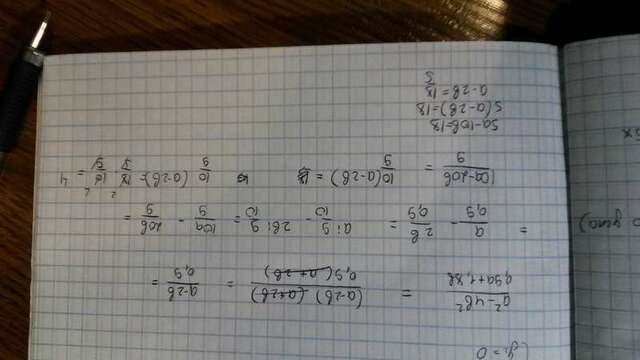 (y₁ = 0
(a² - 4b²)/(0,9a + 1,8b) = ((a-2b)(a+2b))/(0,9(a+2b)) = (a-2b)/0,9 =
= a/0,9 - 2b/0,9 = a : 9/10 - 2b : 9/10 = 10a/9 - 20b/9 =
(10a-20b)/9 = 10/9 (a-2b) = 10/9 (a-2b) = 18/5 · 10/9 = 4
5a-10b=18
5(a-2b)=18
a-2b = 18/5
5x